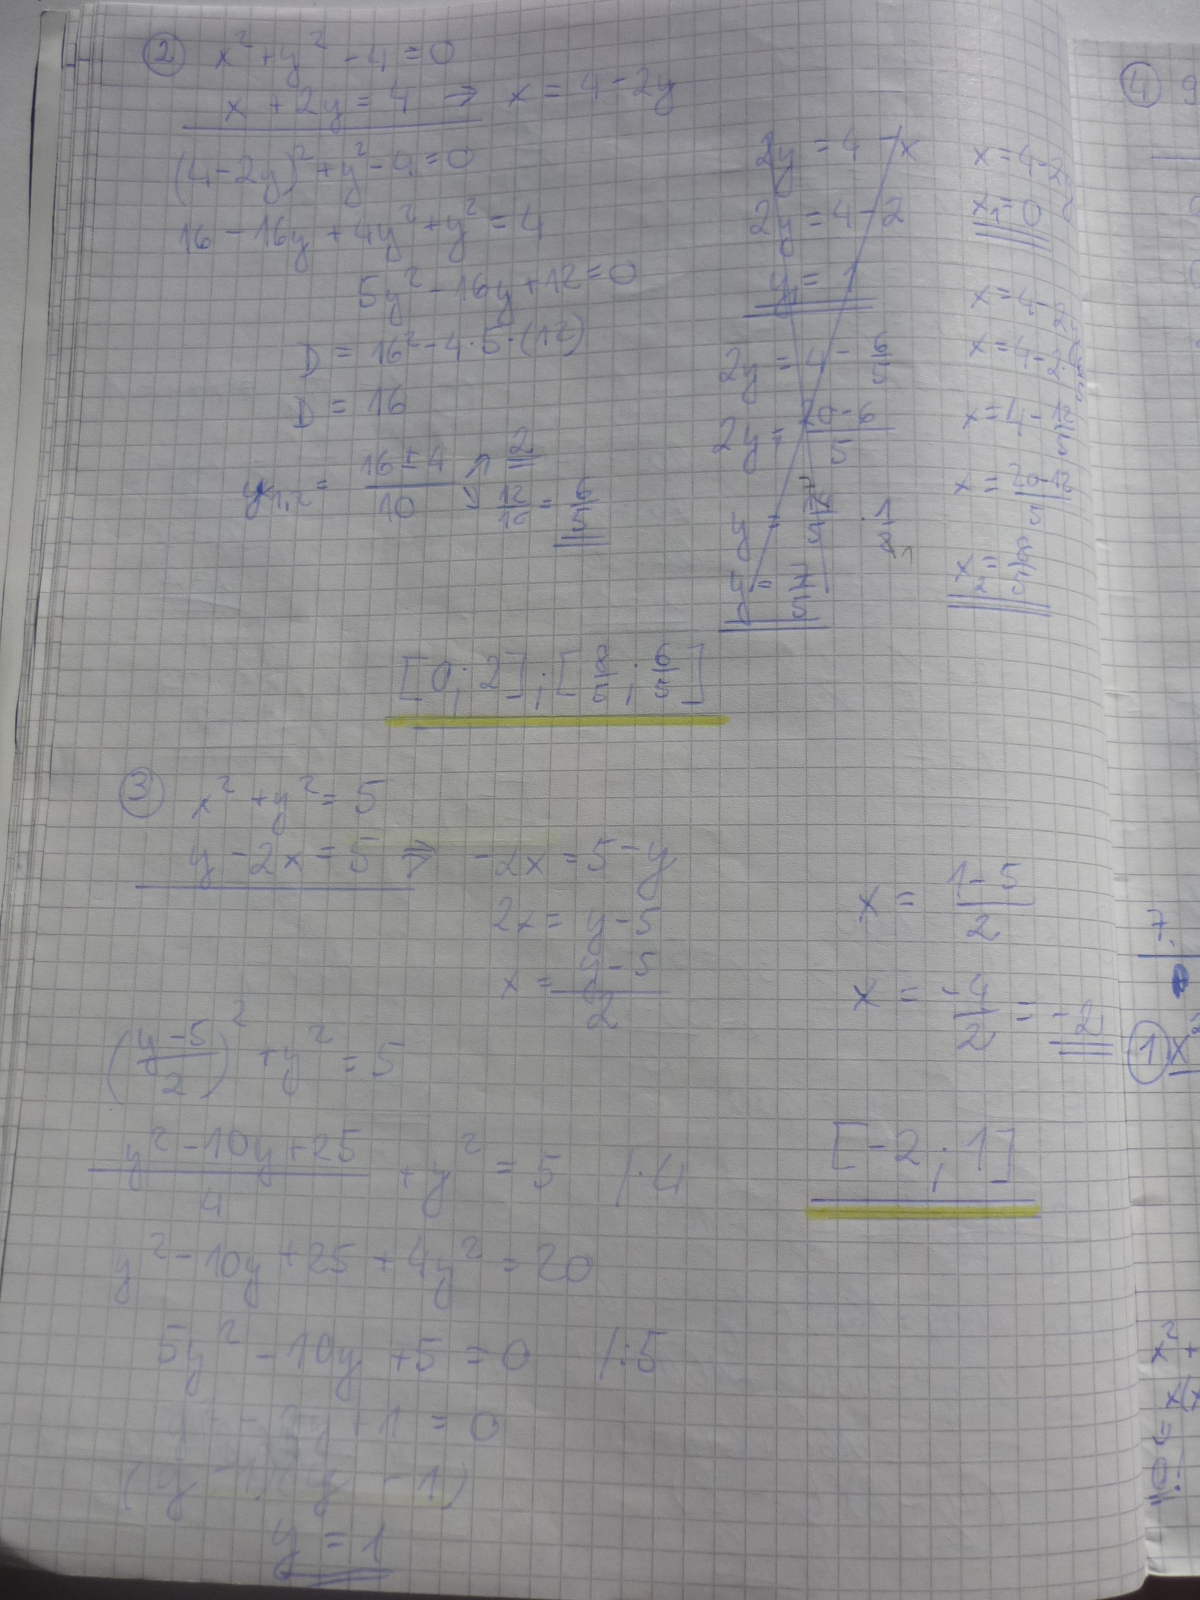 ② x² + y² - 4 = 0
x + 2y = 4 → x = 4 - 2y
(4 - 2y)² + y² - 4 = 0
16 - 16y + 4y² + y² = 4
5y² - 16y + 12 = 0
D = 16² - 4·5·(12)
D = 16
y₁,₂ = (16 ± 4)/10 ↗ 2
↘ 12/10 = 6/5
2y = 4 - x
2y = 4 - 2
y₁ = 1
2y = 4 - 6/5
2y = (20 - 6)/5
y = 14/5 · 1/2
y = 7/5
x = 4 - 2·
x₁ = 0
x = 4 - 2
x = 4 - 2·6/5
x = 4 - 12/5
x = (20 - 12)/5
x₂ = 8/5
[0; 2]; [8/5; 6/5]
③ x² + y² = 5
y - 2x = 5 ⇒ -2x = 5 - y
2x = y - 5
x = (y - 5)/2
((y - 5)/2)² + y² = 5
(y² - 10y + 25)/4 + y² = 5 /·4
y² - 10y + 25 + 4y² = 20
5y² - 10y + 5 = 0 /:5
y² - 2y + 1 = 0
(y - 1)(y - 1)
y = 1
x = (1 - 5)/2
x = -4/2 = -2
[-2; 1]
④ 9
7.
① x²
x² +
x(x
0